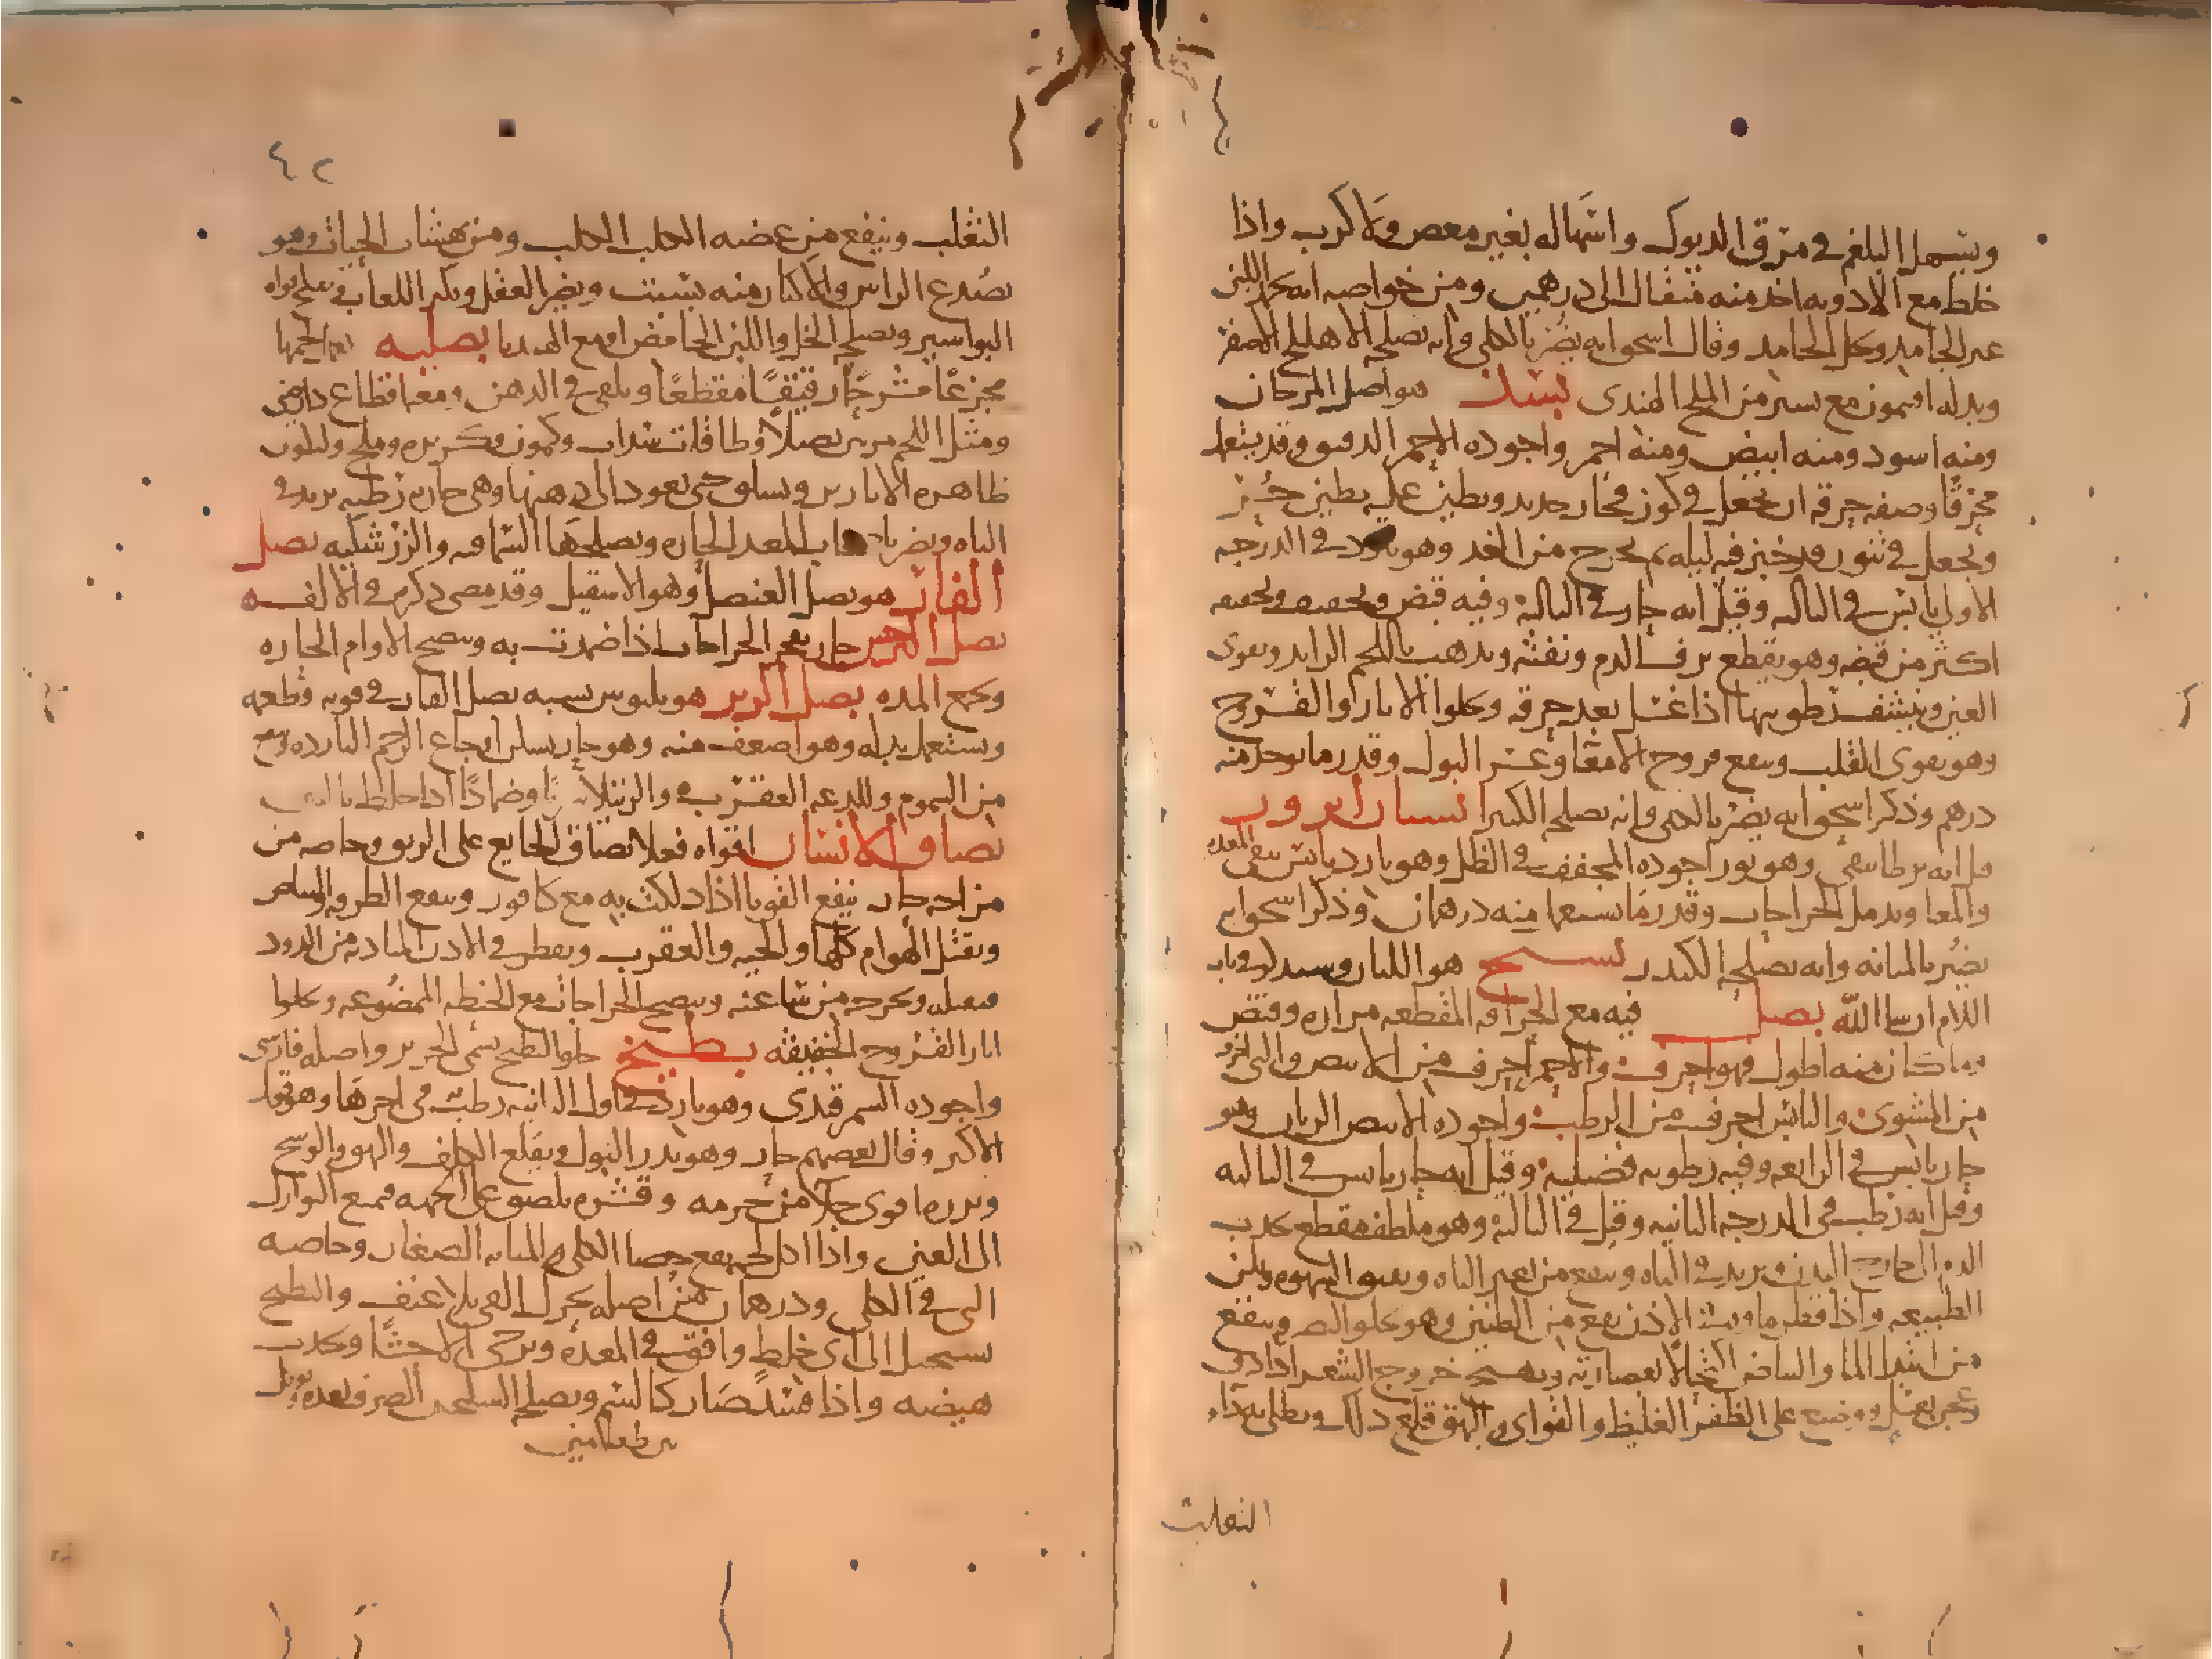 ويسهل البلغم في مرق الديوك واسهاله بغير مغص ولا كرب واذا
خلط مع الادويه اخذ منه مثقال الى درهمين ومن خواصه انه يحمد اللبن
غير الجامد ويحل الجامد وقال اسحق انه يضر بالكلى وانه يصلحه الاهليلج الاصفر
وبدله افيمون مع يسير من الملح الهندى بسد هو اصل المرجان
ومنه اسود ومنه ابيض ومنه احمر واجوده الاحمر الدسو وقد يستعمل
محرقا وصفه حرقه ان يجعل في كوز فخار جديد ويطين عليه بطين حر
ويجعل في تنور قد خبز فيه ليله ثم يخرج من الغد وهو بارد في الدرجه
الاولى يابس في الثالثه وقيل انه حار في الثالثه وفيه قبض وتجفيف وتجفيفه
اكثر من قبضه وهو يقطع نزف الدم ونفثه ويذهب باللحم الزايد ويقوى
العين وينشف رطوبتها اذا غسل بعد حرقه ويجلوا الاثار والقروح
وهو يقوى القلب وينفع قروح الامعا وعسر البول وقدر ما يوخذ منه
درهم وذكر اسحق انه يضر بالكلى وانه يصلحه الكثيرا بستان ابروز
قيل انه برطانيقى وهو نور اجوده المجفف في الظل وهو بارد يابس ينفع المعده
والمعا ويدمل الجراحات وقدر ما يستعمل منه درهمان وذكر اسحق انه
يضر بالمثانه وانه يصلحه الكندر بستج هو اللبان وسيذكر في باب
اللام ان شا الله بصل فيه مع الحرافه المقطعه مراره وقبض
وما كان منه اطول فهو احرف والاحمر احرف من الابيض والنى احرف
من المشوى واليابس احرف من الرطب واجوده الابيض الريان وهو
حار يابس في الرابعه وفيه رطوبه فضليه وقيل انه حار يابس في الثالثه
وقيل انه رطب في الدرجه الثانيه وقيل في الثالثه وهو ملطف مقطع يجذب
الدم الى خارج البدن ويزيد في الباه وينفع من تغير المياه ويفتق الشهوه ويلين
الطبيعه واذا قطر ماوه في الاذن نفع من الطنين وهو يجلو البصر وينفع
من ابتدا الما والبياض اكتحالا بعصارته ويهيج خروج الشعر اذا دق
وعجن بعسل ووضع على الظفر الغليظ والقوابى والبهق قلع ذلك ويطلى به داء
الثعلب
٤٢
الثعلب وينفع من عضه الكلب الكلب ومن نهشات الحيات وهو
يصدع الراس والاكثار منه يسبت ويضر العقل ويكثر اللعاب ويفتح افواه
البواسير ويصلحه الخل واللبن الحامض او مع الهندبا بصليه لحمها
مجزعا مشرحا رقيقا مقطعا ويلقى في الدهن ومعها قطاع دارصينى
ومثل اللحم مرتين بصلا وطاقات سداب وكمون وكزبره وملح ولتلون
ظاهره الابازير ويسلق حتى يعود الى دهنها وهى حاره رطبه يزيد في
الباه ويضر باصحاب المعد الحاره ويصلحها السماقيه والزرشكيه بصل
الفار هو بصل العنصل وهو الاسقيل وقد مضى ذكره في الالف
بصل النرجس حار يلحم الجراحات اذا ضمدت به وينضج الاورام الحاره
ويجمع المده بصل الزير هو بلبوس يشبه بصل الفار في قوته وقطعه
ويستعمل بدله وهو اضعف منه وهو حار يسكن اوجاع الرحم البارده وينفع
من السموم وللدغه العقرب والرتيلا شربا وضمادا اذا خلط بالتين
بصاق الانسان اقواه فعلا بصاق الجايع على الريق وخاصه من
مزاجه حار ينفع القوبا اذا دلكت به مع كافور وينفع الطرفه والبياض
ويقتل الهوام كلها والحيه والعقرب ويقطر في الاذن المتاذيه من الدود
فيقتله ويخرجه من ساعته وينضج الجراحات مع الحنطه الممضوغه ويجلوا
اثار القروح الخفيفه بطيخ حلو البطيخ يسمى الخربز واصله فارسى
واجوده السمرقندى وهو بارد في اول الثانيه رطب في اخرها وهو قول
الاكثر وقال بعضهم حار وهو يدر البول ويقلع الكلف والبهق والوسخ
وبزره اقوى جلا من جرمه وقشره يلصق على الجبهه فيمنع النوازل
الى العين واذا اكل لحمه نفع حصا الكلى والمثانه الصغار وخاصه
التى في الكلى ودرهمان من اصله يحرك القى بلا عنف والبطيخ
يستحيل الى اى خلط وافق في المعده ويرخى الاحشا ويحدث
هيضه واذا فسد صار كالسم ويصلحه السكنجبين الصرف بعده ويوكل
بين طعامين